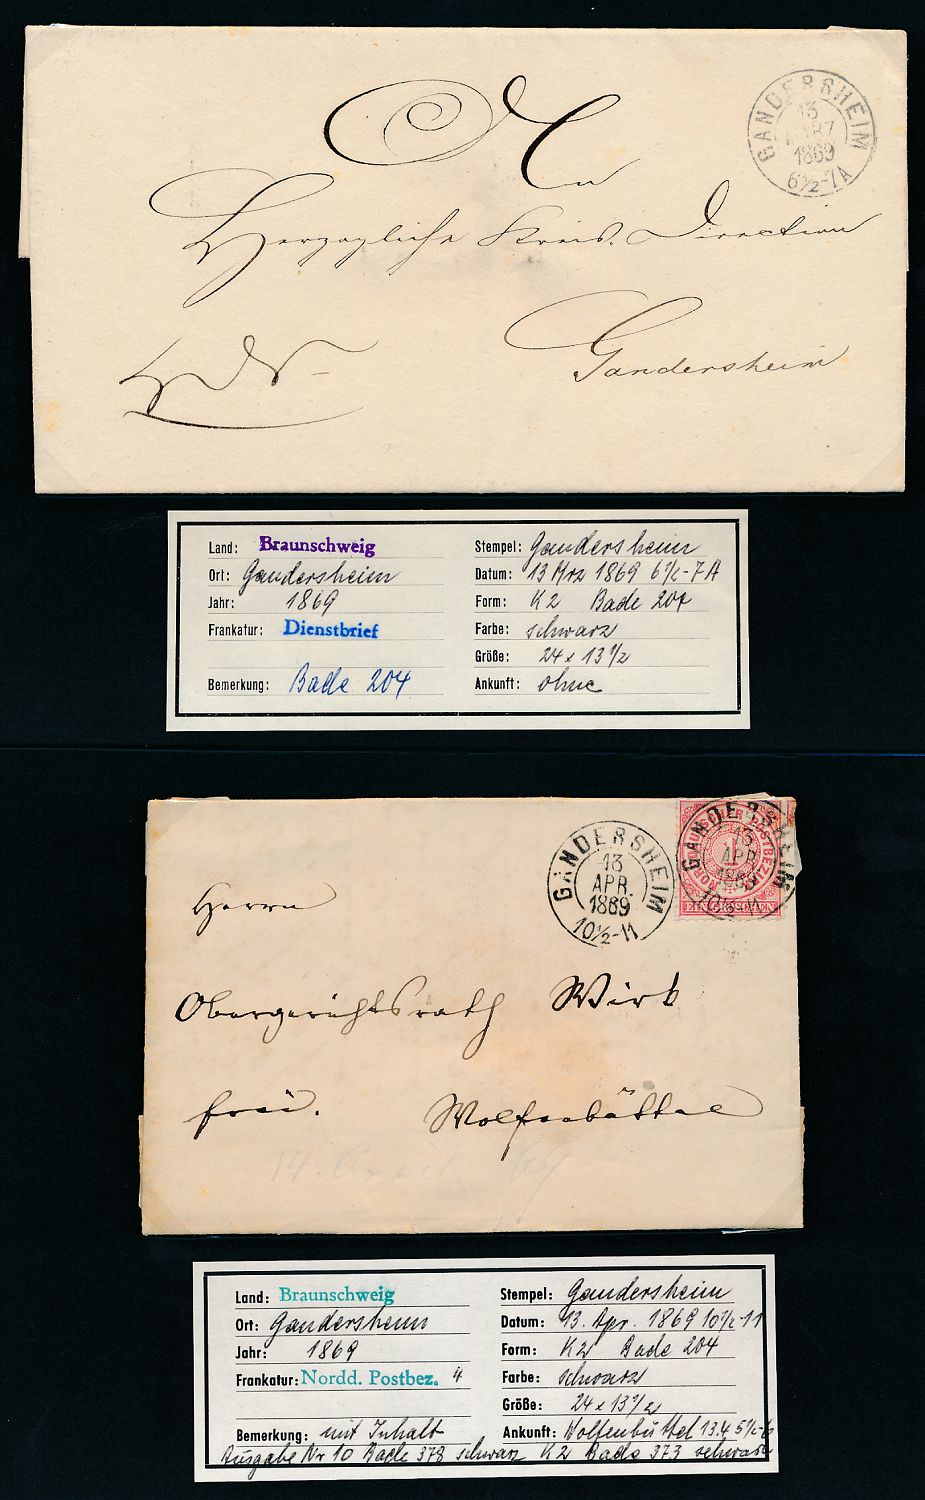 GANDERSHEIM
13
MÄRZ
1869
6½-7A
An
Herzogliche Kreis. Direction
Gandersheim
Land: Braunschweig
Ort: Gandersheim
Jahr: 1869
Frankatur: Dienstbrief
Bemerkung: Bade 204
Stempel: Gandersheim
Datum: 13 Mrz 1869 6½-7A
Form: K2 Bade 204
Farbe: schwarz
Größe: 24 x 13½
Ankunft: ohne
GANDERSHEIM
13
APR.
1869
10½-11
GANDERSHEIM
13
APR.
1869
10½-11
NORDDEUTSCHER POSTBEZIRK
1
EIN GROSCHEN
Herrn
Obergerichtsrath Wirk
frei. Wolfenbüttel
Land: Braunschweig
Ort: Gandersheim
Jahr: 1869
Frankatur: Nordd. Postbez. 4
Bemerkung: mit Inhalt
Stempel: Gandersheim
Datum: 13. Apr. 1869 10½-11
Form: K2 Bade 204
Farbe: schwarz
Größe: 24 x 13½
Ankunft: Wolfenbüttel 13.4 5½-6
Ausgabe Nr 10 Bade 378 schwarz K2 Bade 373 schwarz